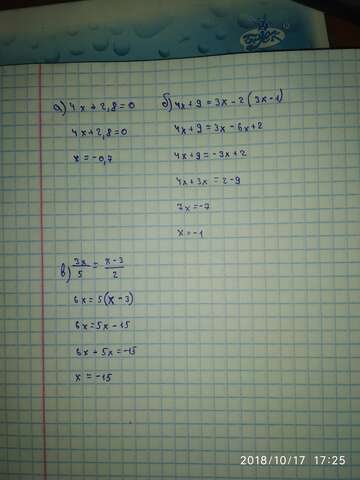 а) 4x + 2,8 = 0
4x + 2,8 = 0
x = -0,7
б) 4x + 9 = 3x - 2 (3x - 1)
4x + 9 = 3x - 6x + 2
4x + 9 = -3x + 2
4x + 3x = 2 - 9
7x = -7
x = -1
в) 3x/5 = x-3/2
6x = 5(x - 3)
6x = 5x - 15
6x + 5x = -15
x = -15
2018/10/17 17:25